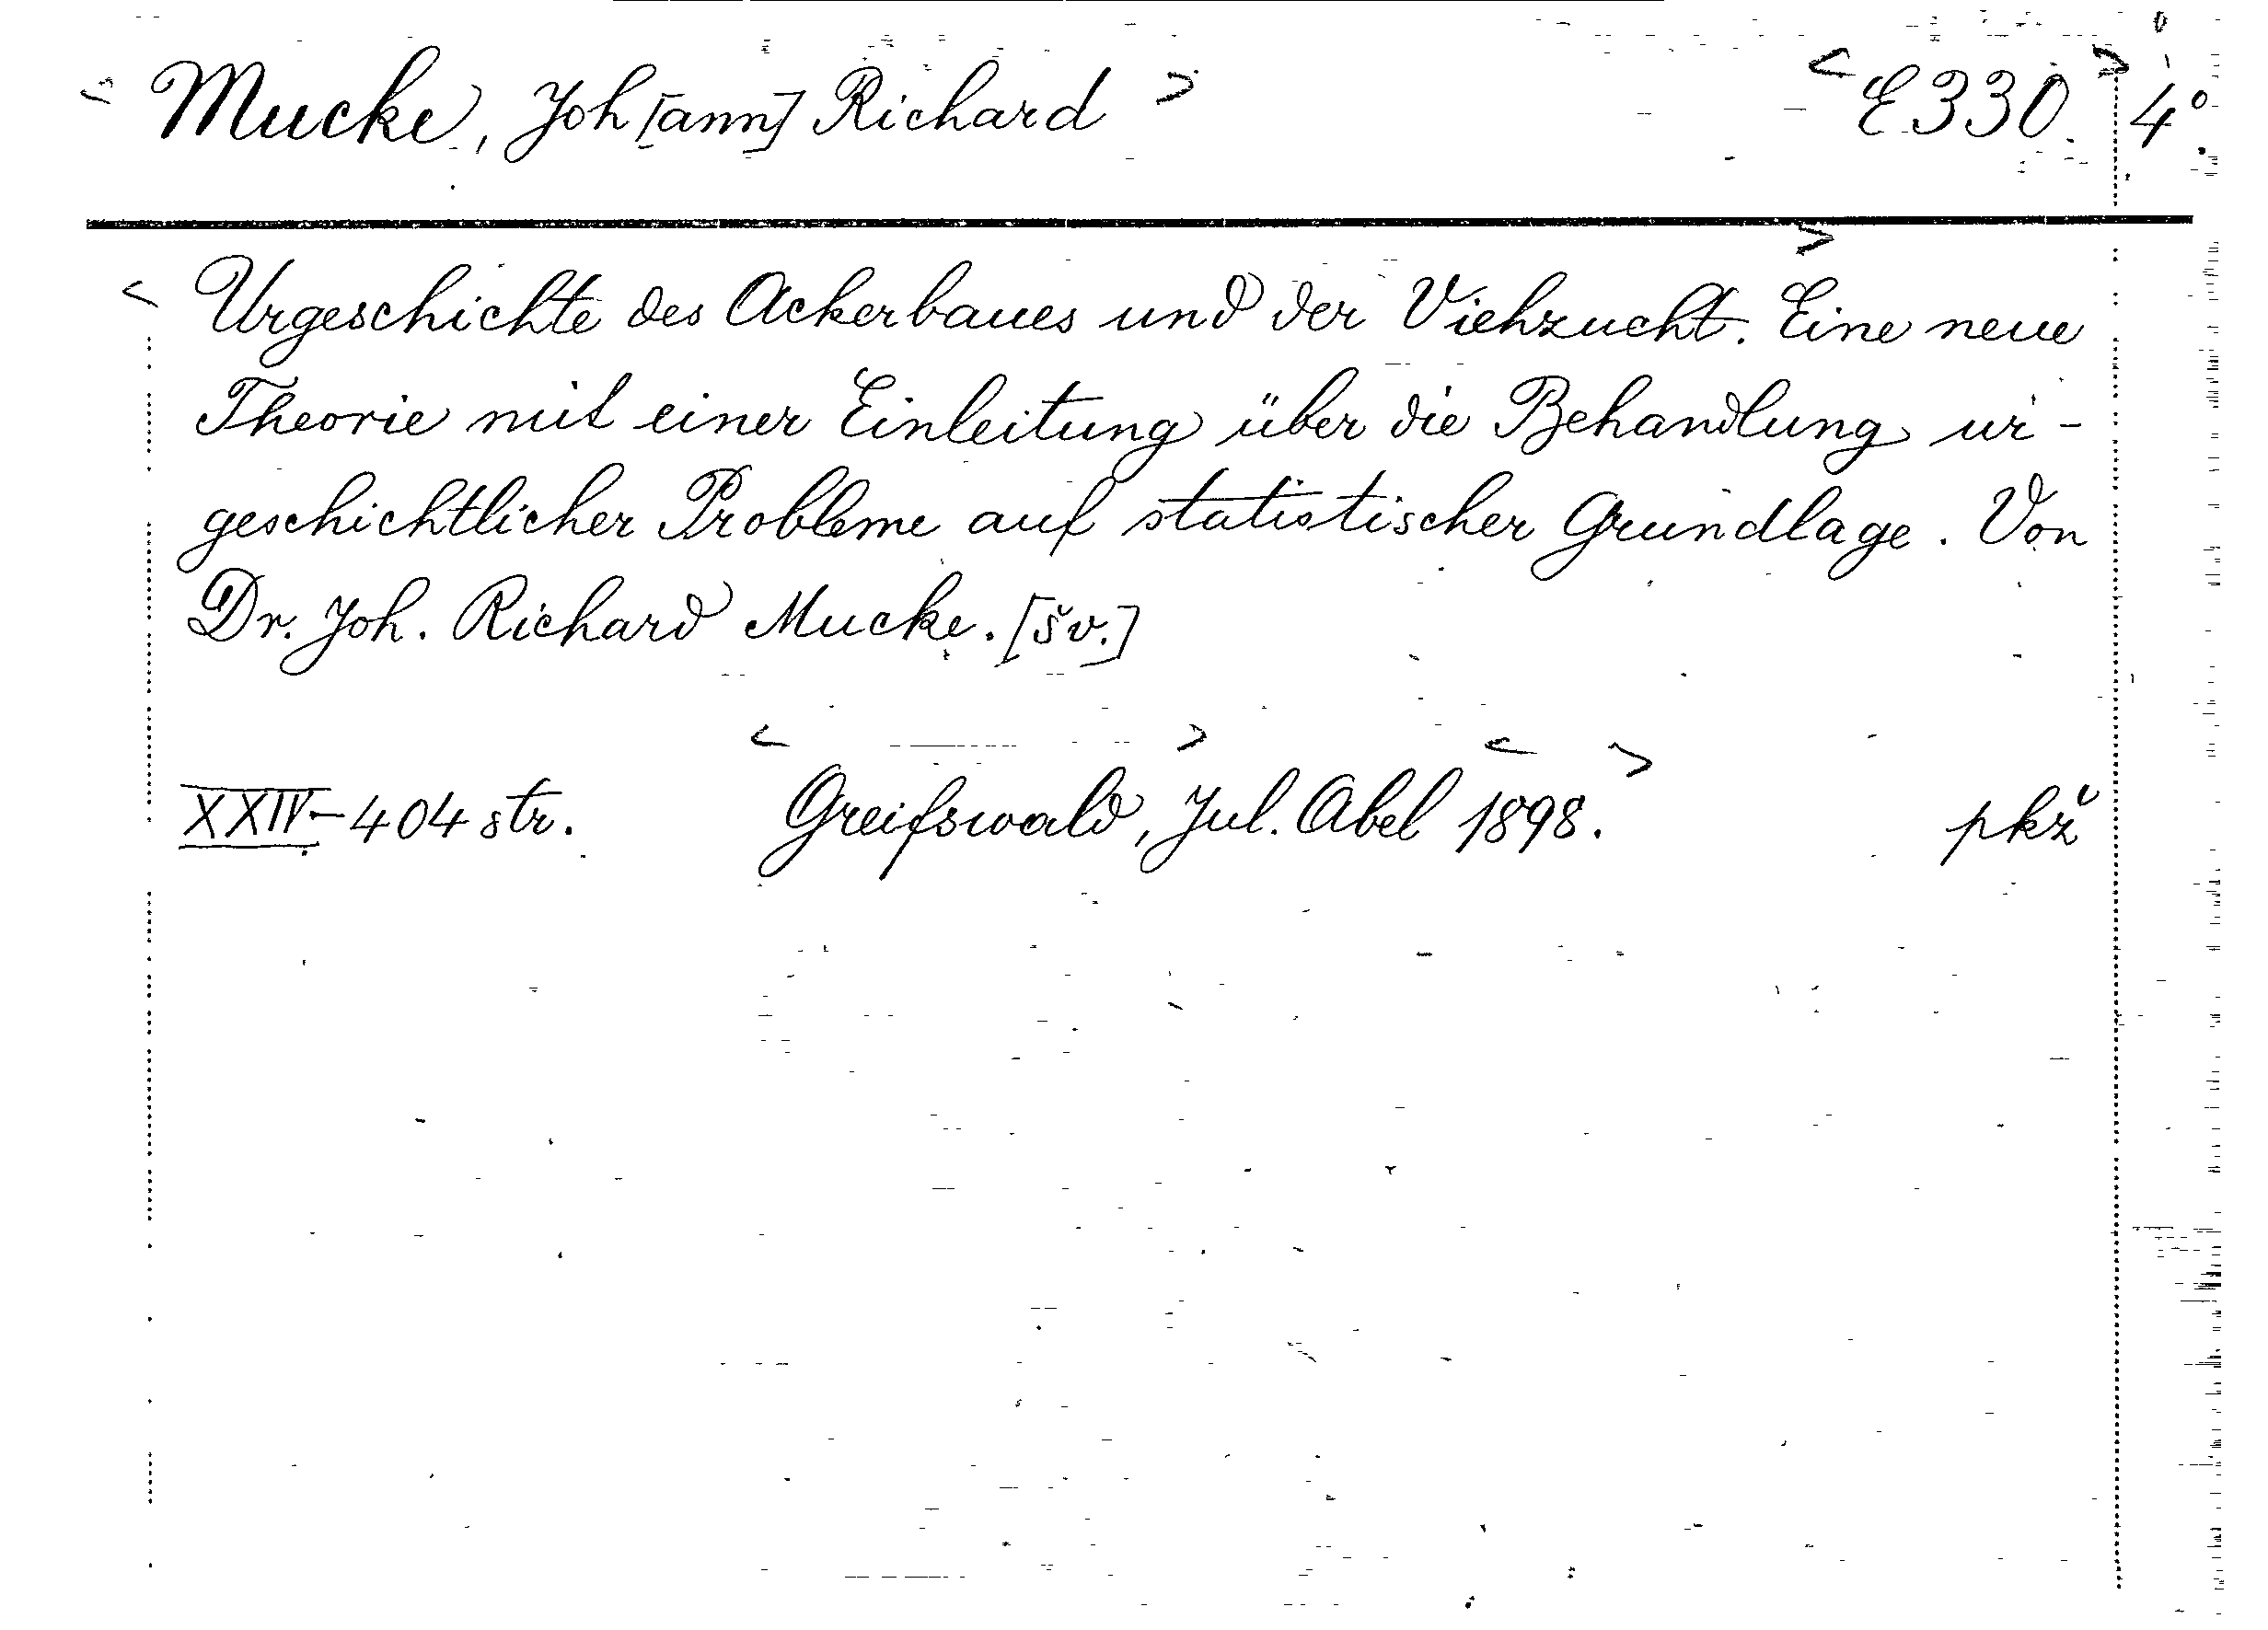 < Mucke, Joh[ann] Richard > <E330> 4°
< Urgeschichte des Ackerbaues und der Viehzucht. > Eine neue
Theorie mit einer Einleitung über die Behandlung ur-
geschichtlicher Probleme auf statistischer Grundlage. Von
Dr. Joh. Richard Mucke. [šv.]
XXIV-404 str. < Greifswald, Jul. Abel > < 1898. > pkž